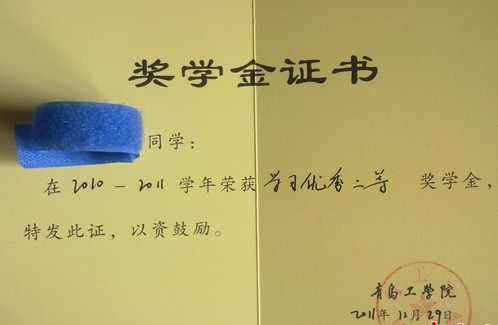 奖学金证书
同学：
在 2010－2011 学年荣获 学习优秀二等 奖学金，
特发此证，以资鼓励。
青岛工学院
2011年12月29日